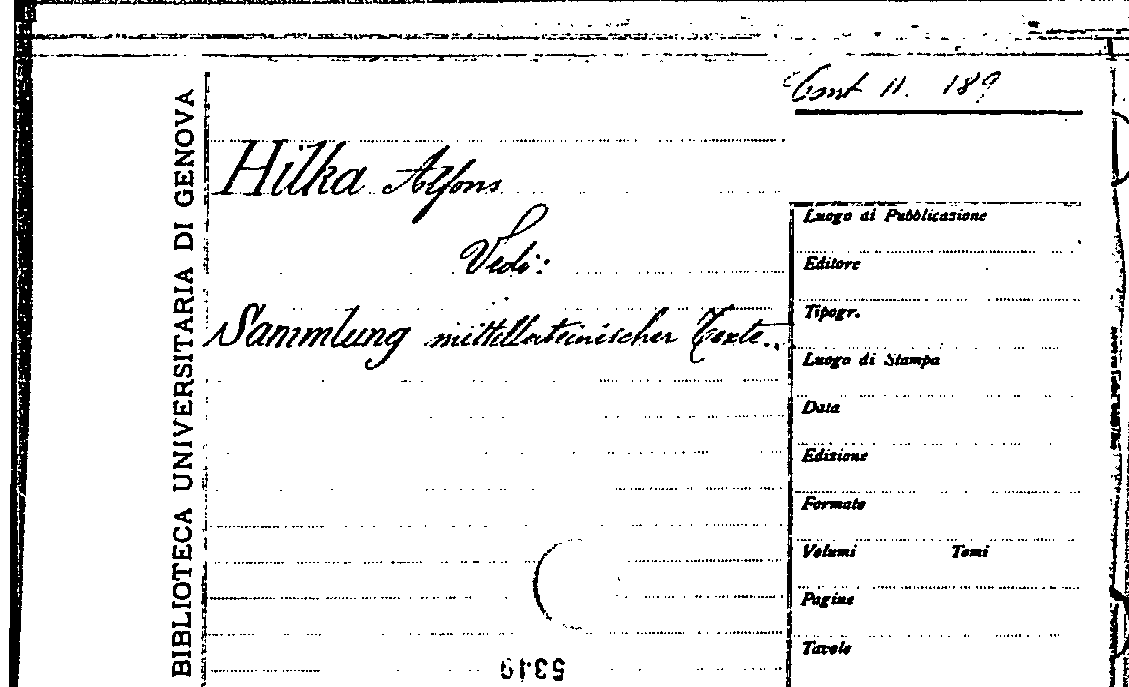 Cont 11. 189
BIBLIOTECA UNIVERSITARIA DI GENOVA
Hilka Alfons
Vedi:
Sammlung mittellateinischer Texte..
Luogo di Pubblicazione
Editore
Tipogr.
Luogo di Stampa
Data
Edizione
Formato
Volumi Tomi
Pagine
Tavole